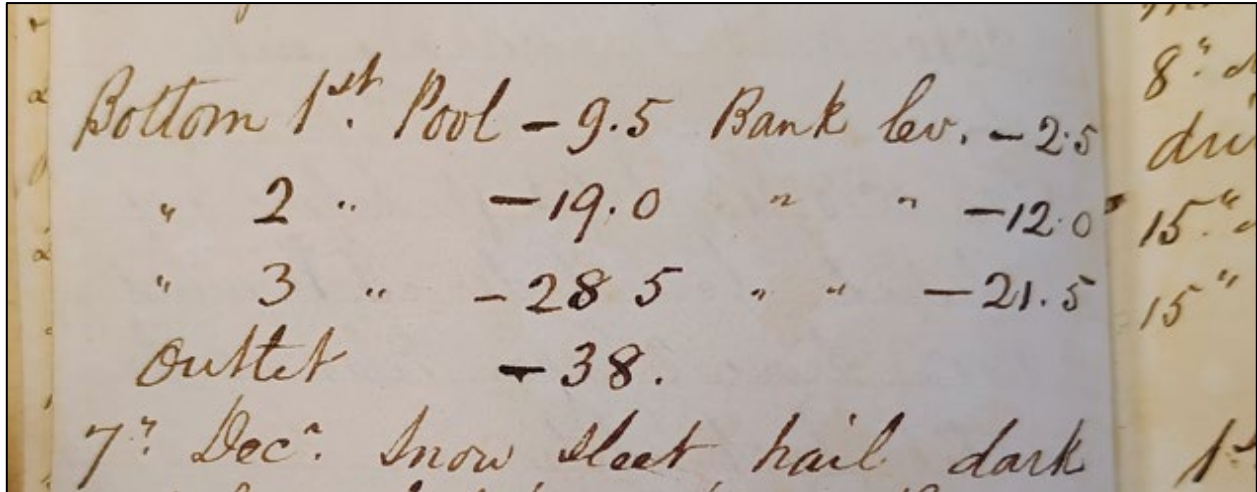 Bottom 1st. Pool - 9.5 Bank lev. - 2.5
" 2 " - 19.0 " " - 12.0
" 3 " - 28 5 " " - 21.5
Outlet - 38.
7" Decr. Snow sleet hail dark
8"
15"
15"